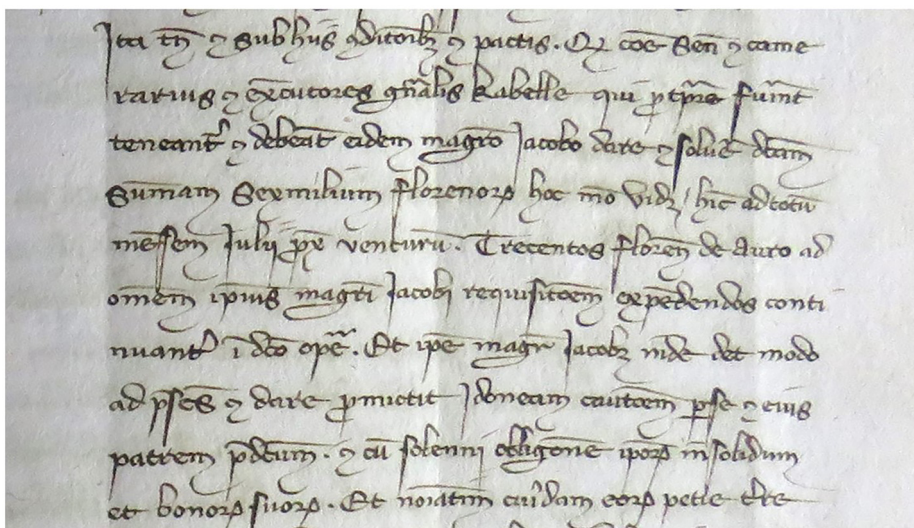 Ita tn̄ ⁊ subhiis ꝯditoībꝫ ⁊ pactis. Qꝫ coē Sen̄ ⁊ came
rarius ⁊ exēcutores gn̄alis Kabelle qui ꝓ tp̄re fuīnt
teneant᷑ ⁊ debeāt eidem magr̄o Jacobo dare ⁊ soluē dc̄am
Sum̄am Sexmilium Florenoꝝ hoc mō vidꝫ / hīc ad totū
mēsem Julij ꝓx venturū. Trecentos florēn de Auro ad
om̄em ip̄ius magr̄i Jacobi requisitōem expēdendos conti
nuant᷑ ī dc̄o opē. Et ip̄e magr̄ Jacobꝫ inde det modo
ad p̄ses ⁊ dare ꝓmictit Jdoneam cautōem ꝑse ⁊ eius
patrem p̄dc̄um. ⁊ cū solenni obligōne ip̄oꝝ insolidum
et bonoꝝ suoꝝ. Et noīatim cuīdam eoꝝ petie t̄re